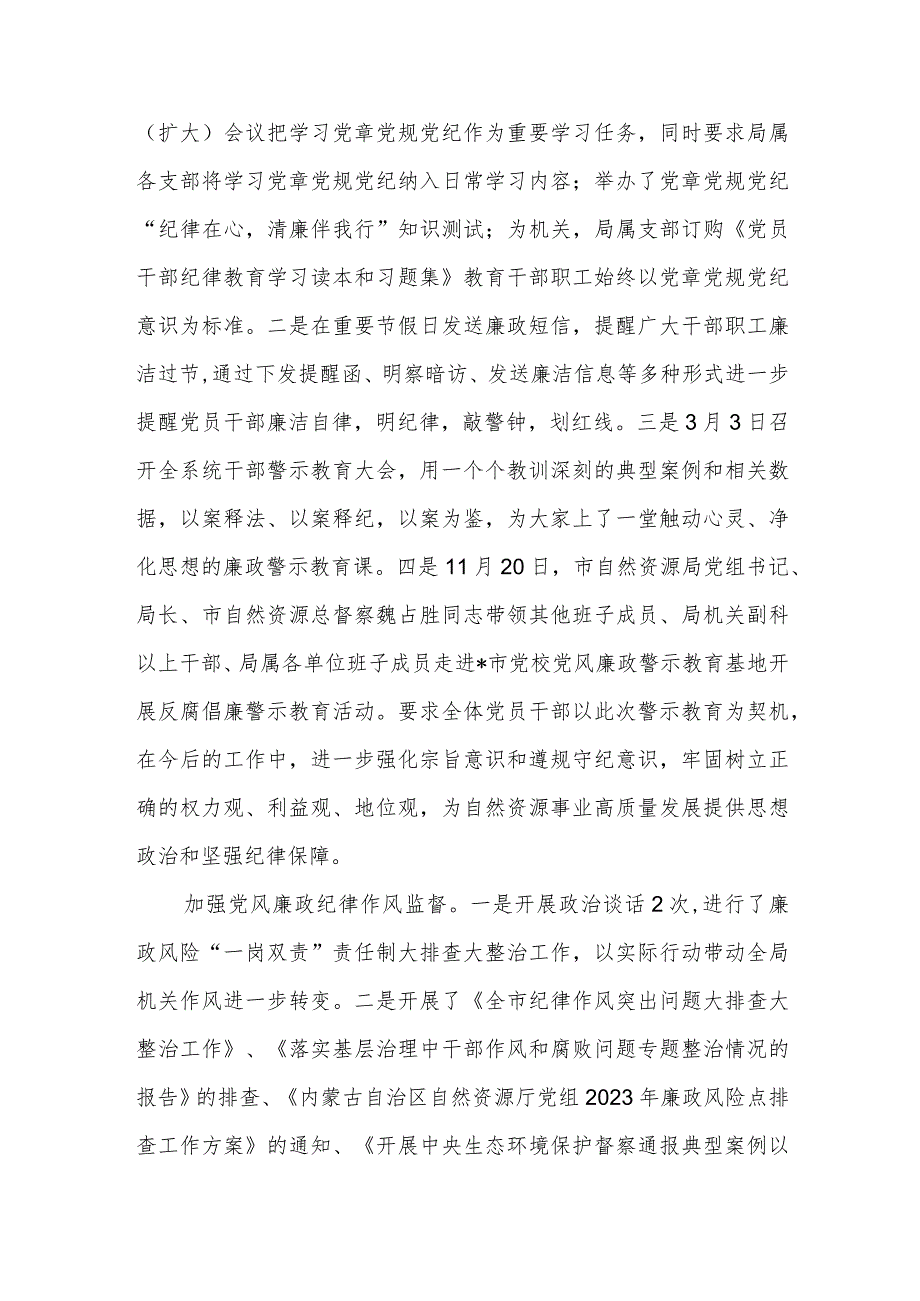 （扩大）会议把学习党章党规党纪作为重要学习任务，同时要求局属
各支部将学习党章党规党纪纳入日常学习内容；举办了党章党规党纪
“纪律在心，清廉伴我行”知识测试；为机关，局属支部订购《党员
干部纪律教育学习读本和习题集》教育干部职工始终以党章党规党纪
意识为标准。二是在重要节假日发送廉政短信，提醒广大干部职工廉
洁过节,通过下发提醒函、明察暗访、发送廉洁信息等多种形式进一步
提醒党员干部廉洁自律，明纪律，敲警钟，划红线。三是3月3日召
开全系统干部警示教育大会，用一个个教训深刻的典型案例和相关数
据，以案释法、以案释纪，以案为鉴，为大家上了一堂触动心灵、净
化思想的廉政警示教育课。四是11月20日，市自然资源局党组书记、
局长、市自然资源总督察魏占胜同志带领其他班子成员、局机关副科
以上干部、局属各单位班子成员走进*市党校党风廉政警示教育基地开
展反腐倡廉警示教育活动。要求全体党员干部以此次警示教育为契机，
在今后的工作中，进一步强化宗旨意识和遵规守纪意识，牢固树立正
确的权力观、利益观、地位观，为自然资源事业高质量发展提供思想
政治和坚强纪律保障。
加强党风廉政纪律作风监督。一是开展政治谈话2次,进行了廉
政风险“一岗双责”责任制大排查大整治工作，以实际行动带动全局
机关作风进一步转变。二是开展了《全市纪律作风突出问题大排查大
整治工作》、《落实基层治理中干部作风和腐败问题专题整治情况的
报告》的排查、《内蒙古自治区自然资源厅党组2023年廉政风险点排
查工作方案》的通知、《开展中央生态环境保护督察通报典型案例以